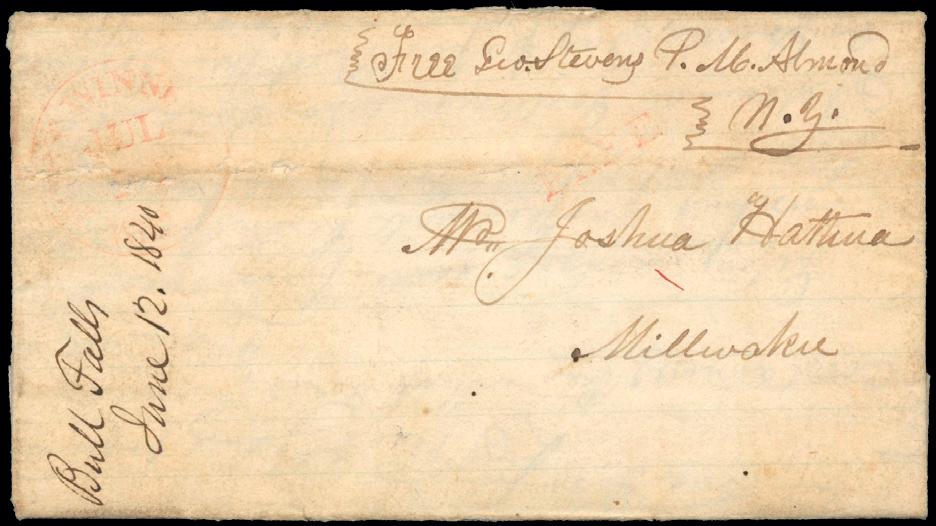 Free Geo. Stevens P. M. Almond
N. Y.
WINN
JUL
FREE
Mr. Joshua Hathua
ay
Millwakie
Bull Falls
June 12. 1840